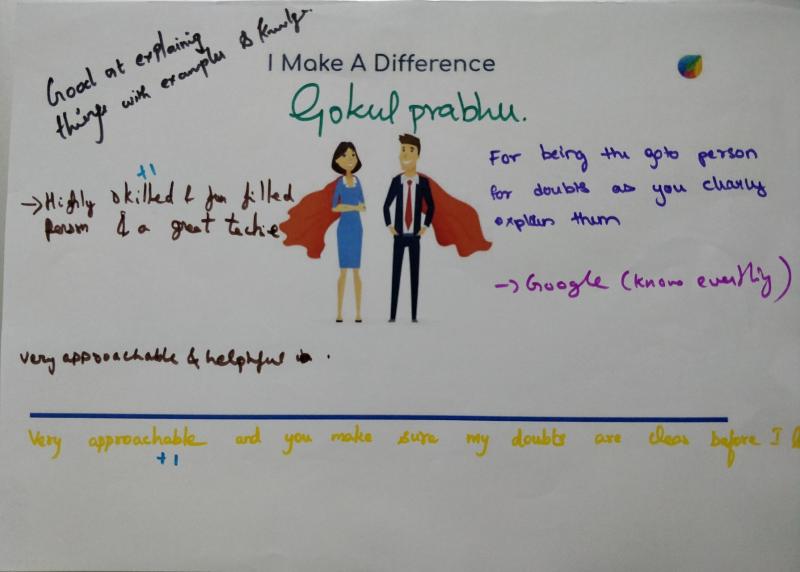 Good at explaining
things with examples &
I Make A Difference
Gokul prabhu.
+1
→ Highly skilled & fun filled
person & a great techie
For being the goto person
for doubts as you clearly
explain them
→ Google (know everthing)
very approachable & helpful
Very approachable and you make sure my doubts are clear before I
+1